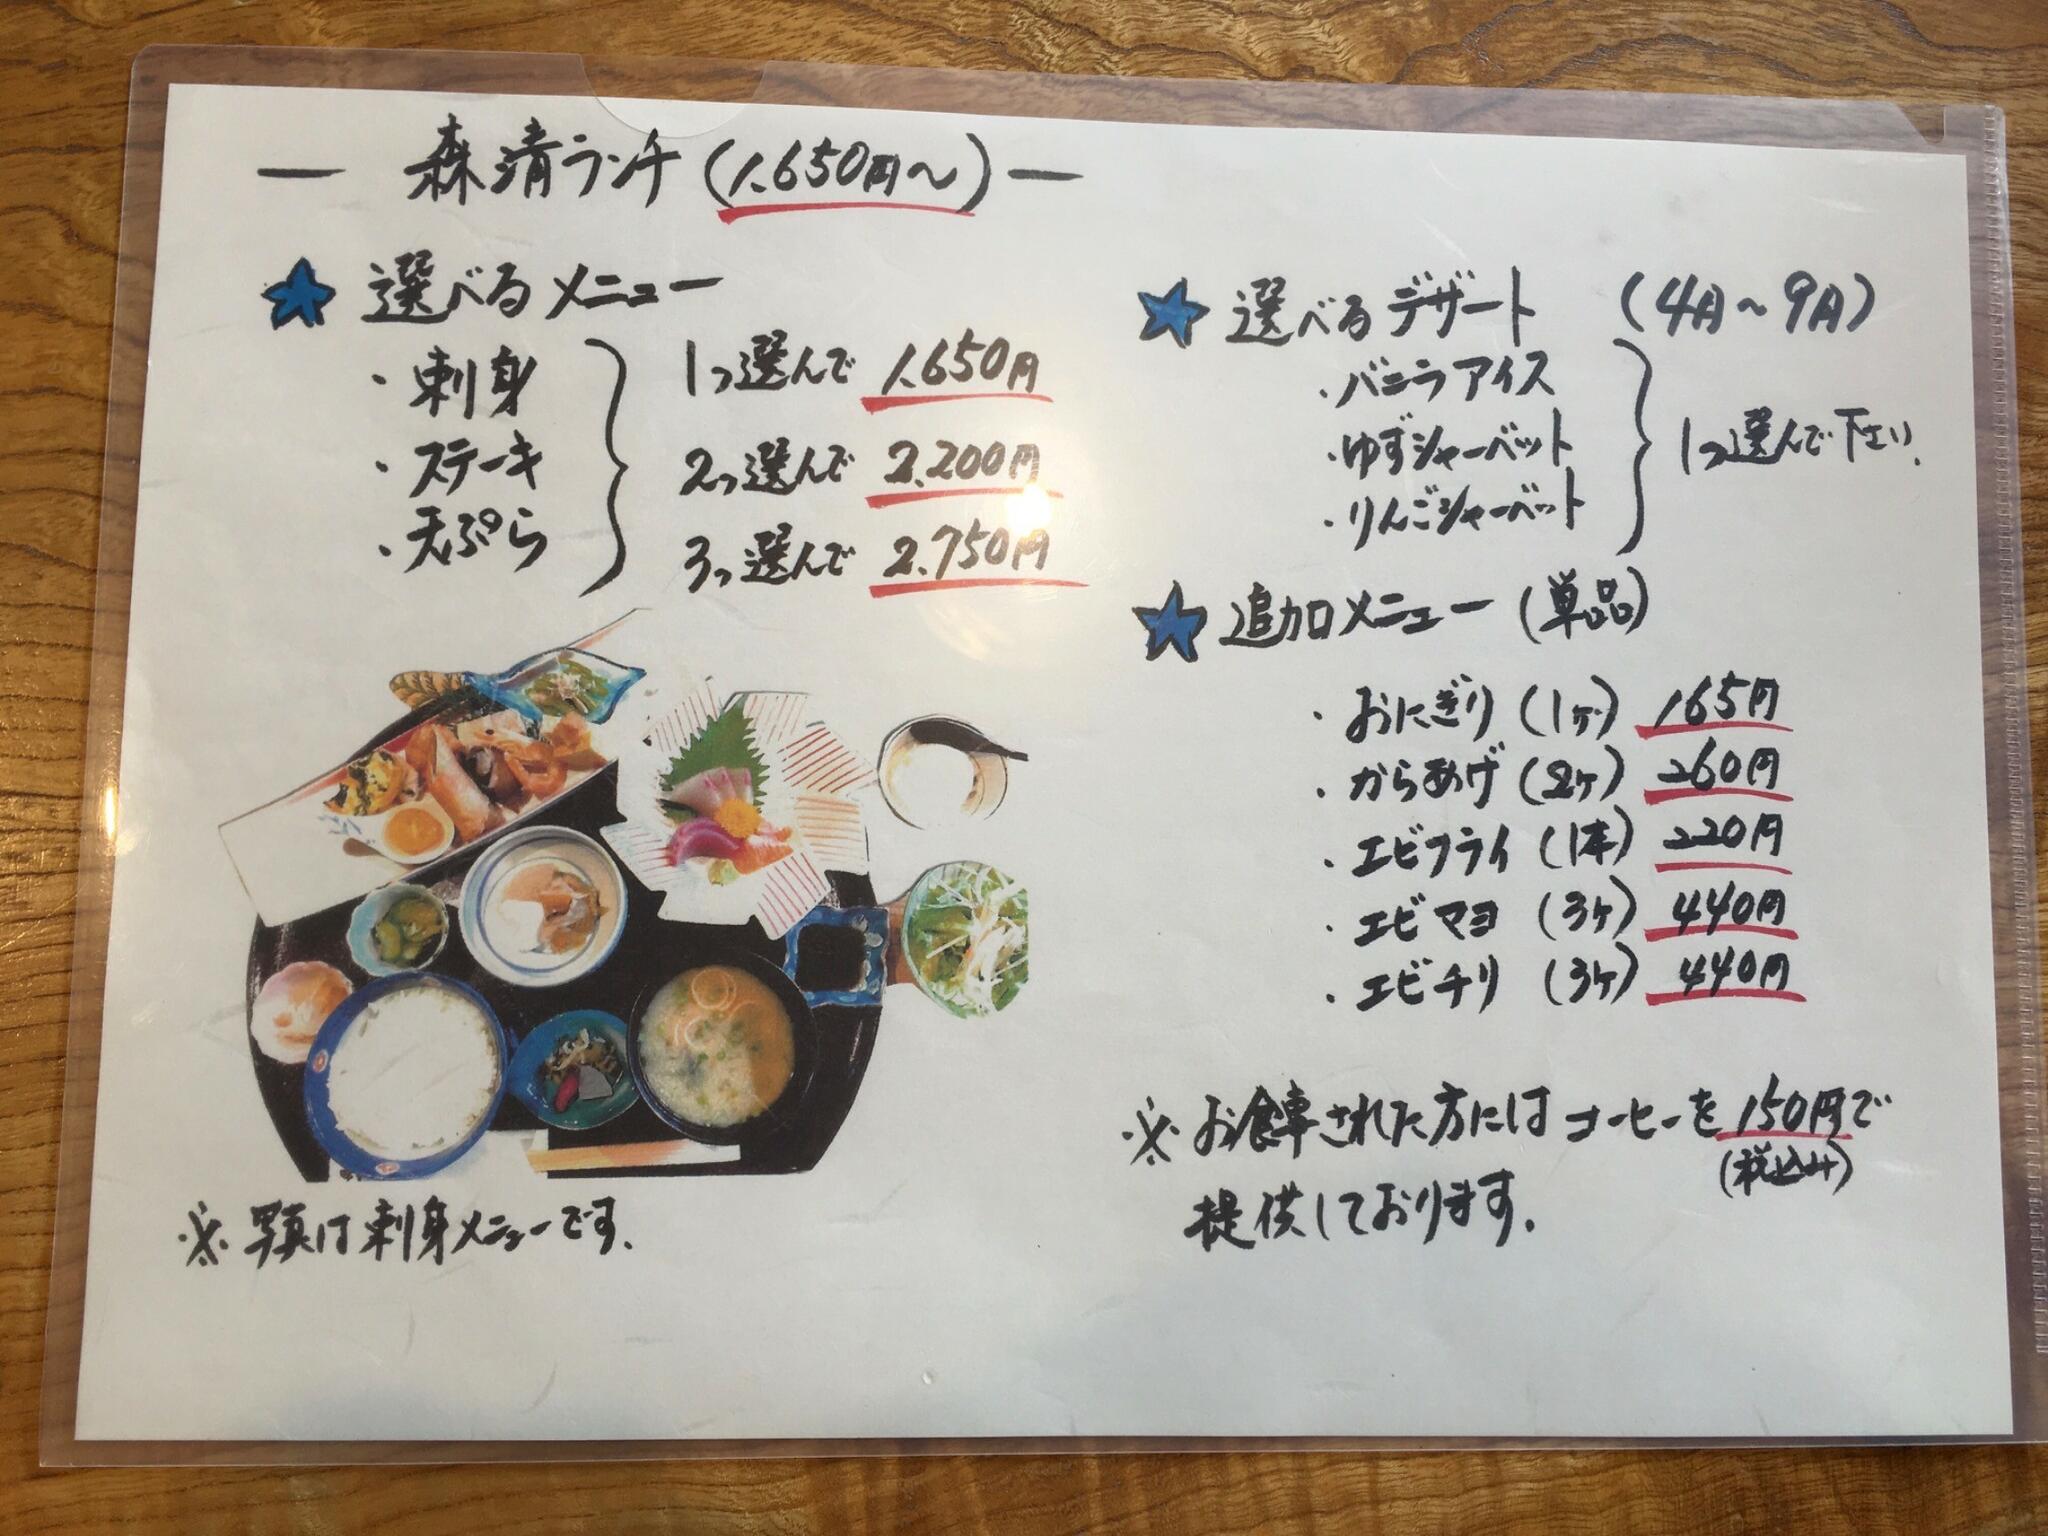 ― 森清ランチ (1,650円〜) ―
★ 選べるメニュー
・刺身
・ステーキ
・天ぷら
1つ選んで 1,650円
2つ選んで 2,200円
3つ選んで 2,750円
※ 写真は刺身メニューです.
★ 選べるデザート (4月〜9月)
・バニラアイス
・ゆずシャーベット
・りんごシャーベット
1つ選んで下さい.
★ 追加メニュー (単品)
・おにぎり (1ヶ) 165円
・からあげ (2ヶ) 260円
・エビフライ (1本) 220円
・エビマヨ (3ヶ) 440円
・エビチリ (3ヶ) 440円
※ お食事された方にはコーヒーを150円で
(税込み)
提供しております.